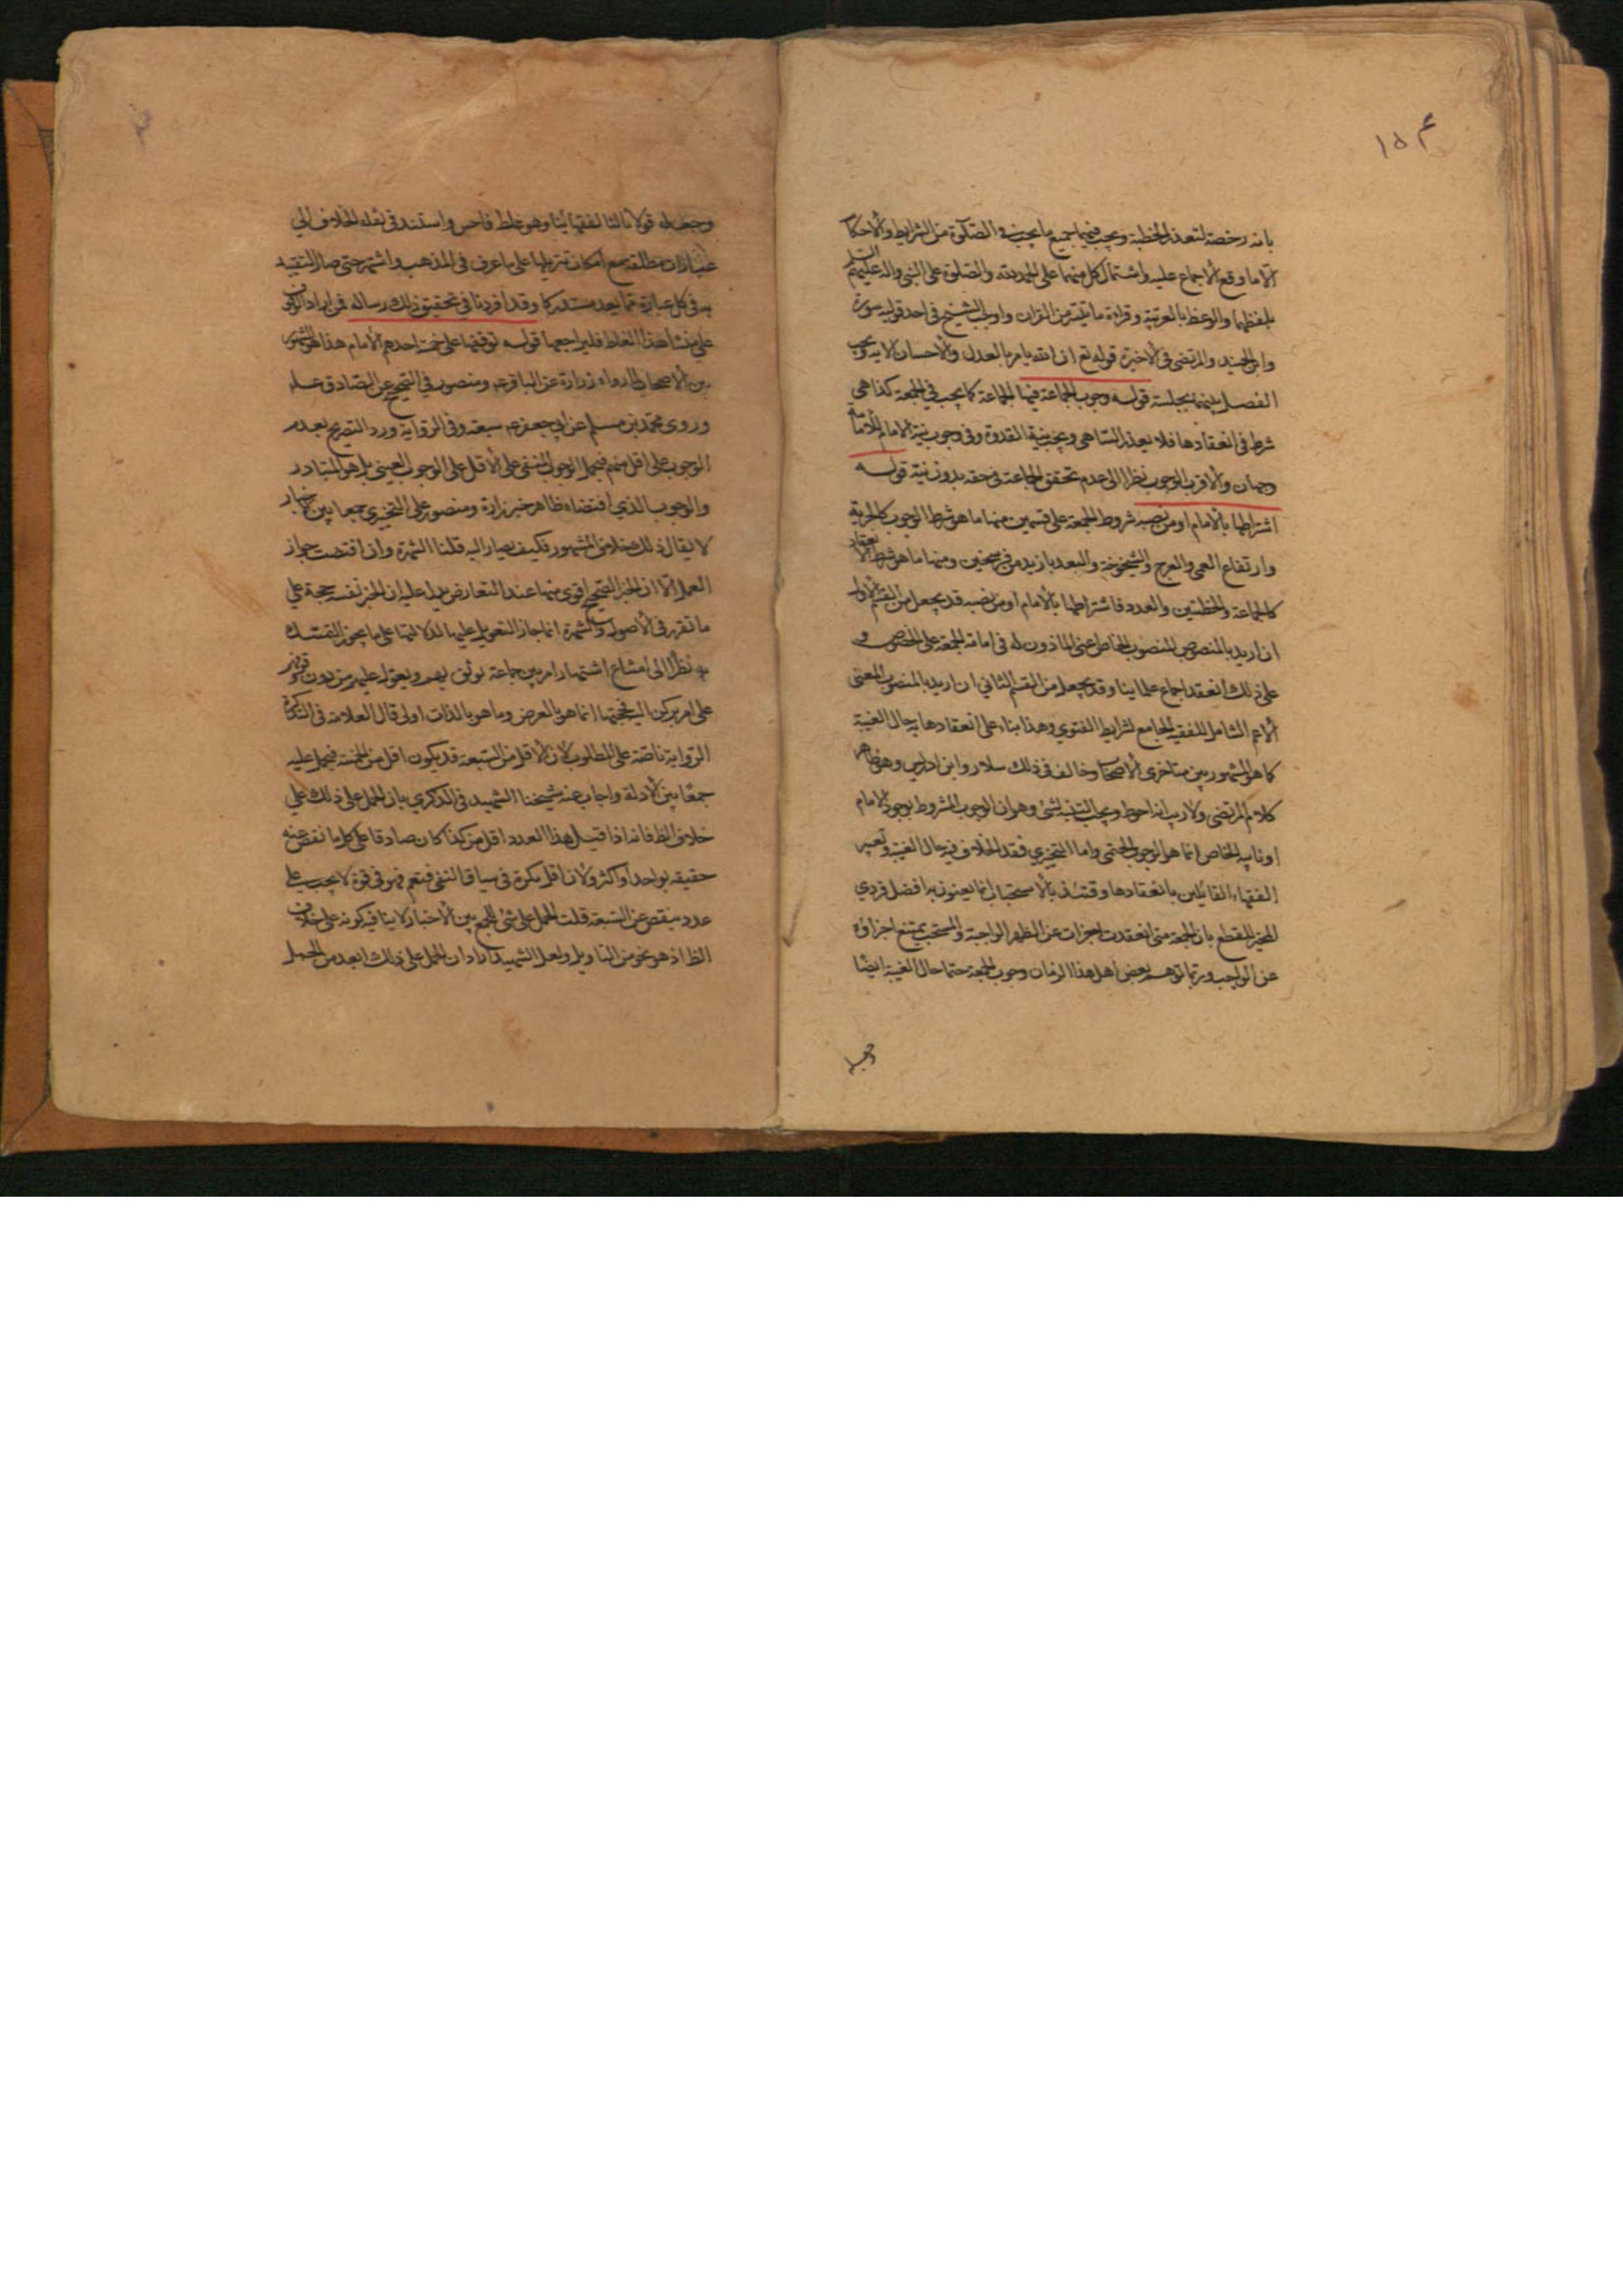 ١٥٤
بانه رخصة لتعذر الخطبة ويجب فيهما جميع ما يجب في الصلوة من الشرايط والاحكا
الا ما وقع الاجماع عليه واشتمال كل منهما على الحمد لله والصلوة على النبي واله عليهم السلم
بلفظهما والوعظ بالعربية وقراءة ما تيسر من القران واوجب الشيخ في احد قوليه سورة
وابن الجنيد والمرتضى في الاخيرة قوله تع ان الله يامر بالعدل والاحسان الاية ويجب
الفصل بينهما بجلسة قوله وجوب الجماعة فيها الجماعة كما يجب في الجمعة كذا هي
شرط في انعقادها فلا يعذر الساهي ويجب نية القدوة وفي وجوب نية الامام للامامة
وجهان والاقرب الوجوب نظرا الى عدم تحقق الجماعة في حقه بدون نية قوله
اشتراطها بالامام او من نصبه شروط الجمعة على قسمين منها ما هو شرط الوجوب كالحرية
وارتفاع العمى والعرج والشيخوخة والبعد بازيد من فرسخين ومنها ما هو شرط الانعقاد
كالجماعة والخطبتين والعدد فاشتراطها بالامام او من نصبه قد يجعل من القسم الاول
ان اريد بالمنصوب المنصوب الخاص اعني الماذون له في امامة الجمعة على الخصوص و
على ذلك انعقد اجماع علماينا وقد يجعل من القسم الثاني ان اريد بالمنصوب المعنى
الاعم الشامل للفقيه الجامع لشرايط الفتوي وهذا بناء على انعقادها به حال الغيبة
كما هو المشهور بين متاخري الاصحاب وخالف في ذلك سلار وابن ادريس وهو ظاهر
كلام المرتضى ولا ريب انه احوط ويجب التنبه لشئ وهو ان الوجوب المشروط بوجود الامام
او نايبه الخاص انما هو الوجوب الحتمي واما التخييري فقد الخلاف فيه حال الغيبة وتعبير
الفقهاء القائلين بانعقادها وقتئذ بالاستحباب انما يعنون به افضل فردي
المخير للقطع بان الجمعة متى انعقدت اجزات عن الظهر الواجبة والمستحب يمتنع اجزاؤه
عن الواجب وربما توهم بعض اهل هذا الزمان وجوب الجمعة حتما حال الغيبة ايضا
وجعله
وجعله قولا ثالثا لفقهائنا وهو غلط فاحش واستند في نقله الخلاف الي
عبارات مطلقة مع امكان تنزيلها على ما عرف في المذهب واشتهر حتى صار التقييد
به في كل عبارة مما يعد مستدركا وقد افردنا في تحقيق ذلك رساله فمن اراد الوقوف
على منشأ هذا الغلط فليراجعها قوله توقفها على خمسة احدهم الامام هذا هو المشهور
بين الاصحاب لما رواه زرارة عن الباقر ع ومنصور في الصحيح عن الصادق عليه
وروى محمد بن مسلم عن ابي جعفر ع سبعة وفي الرواية ورد التصريح بعدم
الوجوب على اقل منهم فيحمل الوجوب المنفي على الاقل على الوجوب العيني بل هو المتبادر
والوجوب الذي اقتضاه ظاهر خبر زرارة ومنصور على التخييري جمعا بين الاخبار
لا يقال ذلك خلاف المشهور فكيف يصار اليه قلنا الشهرة وان اقتضت جواز
العمل الا ان الخبر الصحيح اقوى منها عند التعارض يدل عليه ان الخبر نفسه حجة على
ما تقرر في الاصول والشهرة انما جاز التعويل عليها لدلالتها على ما يجوز التمسك
به نظرا الى امتناع اشتهار امر بين جماعة يوثق بهم ويعول عليهم من دون وقوفهم
على امر يركن اليه فحجيتها انما هو بالعرض وما هو بالذات اولى قال العلامة في التذكرة
الرواية ناصة على المطلوب لان الاقل من السبعة قد يكون اقل من الخمسة فيحمل عليه
جمعا بين الادلة واجاب عنه شيخنا الشهيد في الذكري بان الحمل على ذلك على
خلاف الظ فانه اذا قيل هذا العدد اقل من كذا كان صادقا على كل ما نقص عنه
حقيقة بواحد او اكثر ولان اقل نكرة في سياق النفي فيعم فهو في قوة لا يجب على
عدد ينقص عن السبعة قلت الحمل على شئ للجمع بين الاخبار لا ينافيه كونه على خلاف
الظ اذ هو نحو من التاويل ولعل الشهيد اراد ان الحمل على ذلك ابعد من الحمل